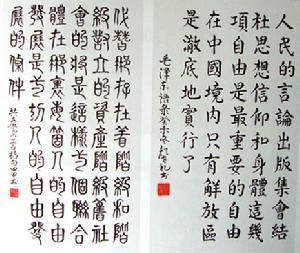 人民的言論出版集會結
社思想信仰和身體這幾
項自由是最重要的自由
在中國境内只有解放區
是澈底地實行了
毛澤东語录
代替那存在着階級和階
級對立的資產階級舊社
會的將是這樣一個聯合
體在那裏每箇人的自由
發展是一切人的自由發
展的條件